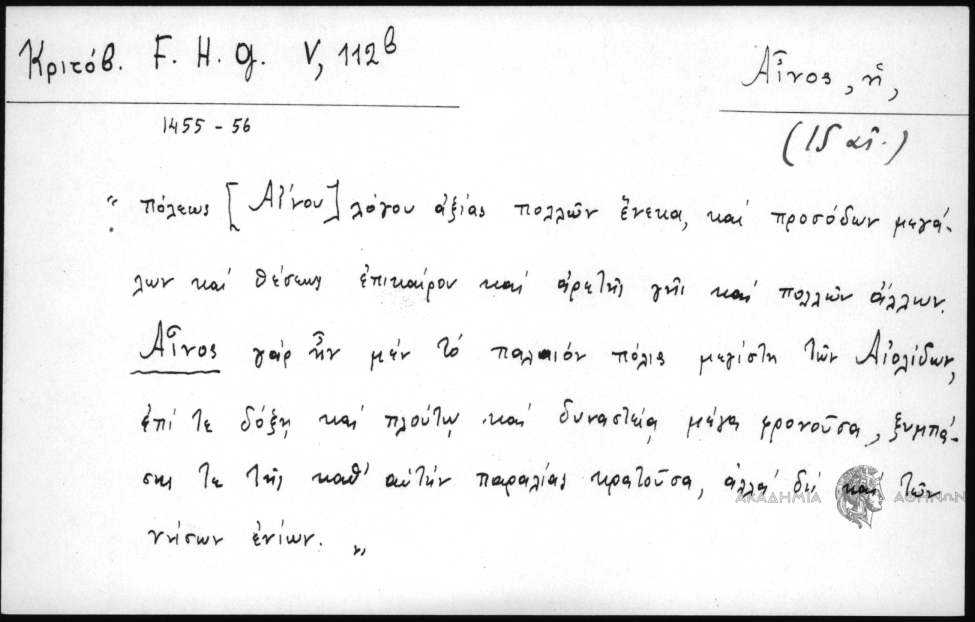 Κριτόβ. F. H. G. V, 112b
Αἶνος, ἡ,
1455 - 56
(15 αἰ.)
"πόλεως [Αἴνου] λόγου ἀξίας πολλῶν ἕνεκα, καί προσόδων μεγά-
λων καί θέσεως ἐπικαίρου καί ἀρετῆς γῆς καί πολλῶν ἄλλων.
Αἶνος γάρ ἦν μέν τό παλαιόν πόλις μεγίστη τῶν Αἰολίδων,
ἐπί τε δόξῃ καί πλούτῳ καί δυναστείᾳ μέγα φρονοῦσα, ξυμπά-
σης τε τῆς καθ' αὑτήν παραλίας κρατοῦσα, ἀλλά δή καί τῶν
νήσων ἐνίων. "
ΑΚΑΔΗΜΙΑ ΑΘΗΝΩΝ